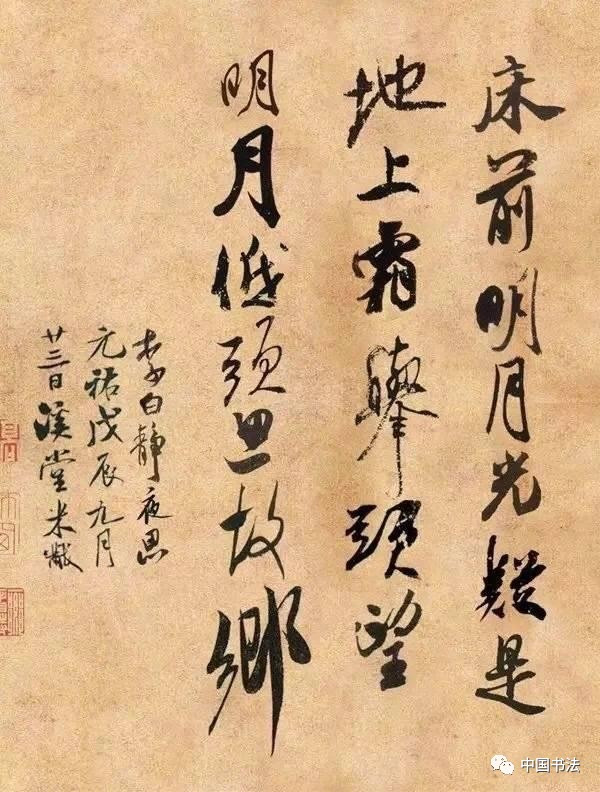 床前明月光疑是
地上霜舉頭望
明月低頭思故鄉
李白靜夜思
元祐戊辰九月
廿三日溪堂米黻
中国书法